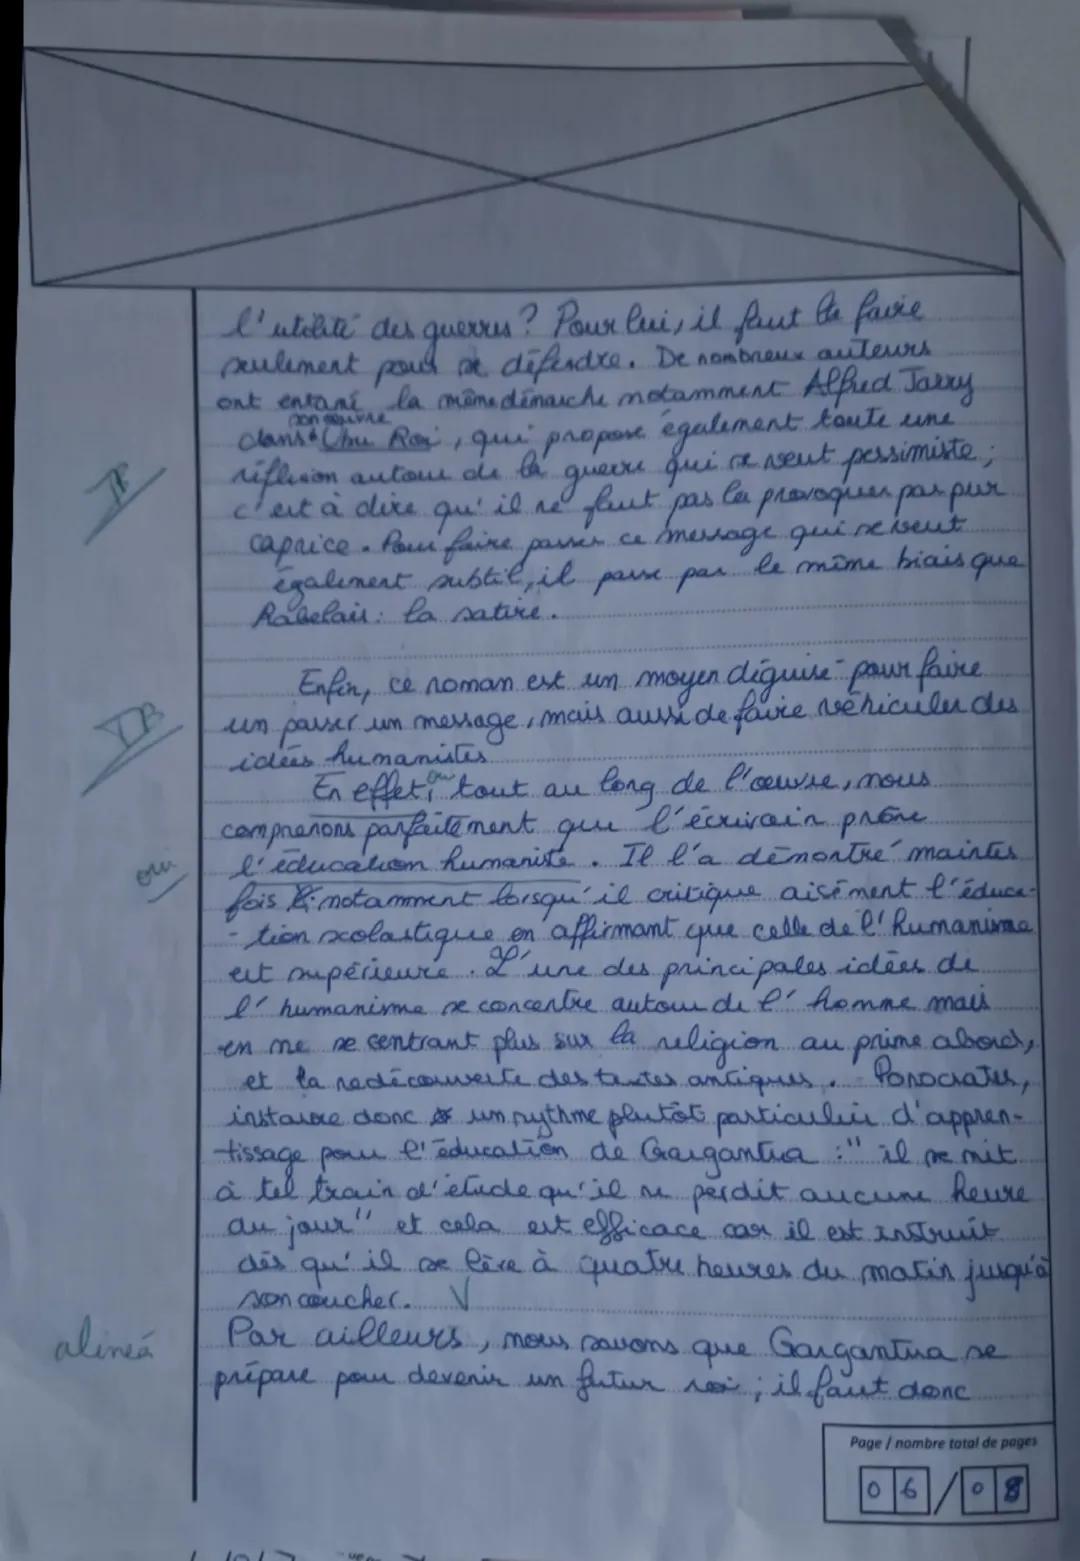 l'utilité des guerres ? Pour lui, il faut la faire
seulement pour se défendre. De nombreux auteurs
ont entamé la même démarche notamment Alfred Jarry
son œuvre
dans Ubu Roi, qui propose également toute une
réflexion autour de la guerre qui se veut pessimiste ;
c'est à dire qu'il ne faut pas la provoquer par pur
caprice. Pour faire passer ce message qui se veut
également subtil, il passe par le même biais que
Rabelais : la satire.
TB
Enfin, ce roman est un moyen déguisé pour faire
un passer un message, mais aussi de faire véhiculer des
idées humanistes
TB
oui
En effet, tout au long de l'œuvre, nous
comprenons parfaitement que l'écrivain prône
l'éducation humaniste. Il l'a démontré maintes
oui
fois notamment lorsqu'il critique aisément l'éduca-
-tion scolastique en affirmant que celle de l'humanisme
est supérieure. L'une des principales idées de
l'humanisme se concentre autour de l'homme mais
en ne se centrant plus sur la religion au prime abord,
et la redécouverte des textes antiques. Ponocrates,
instaure donc un rythme plutôt particulier d'appren-
-tissage pour l'éducation de Gargantua : " il se mit
à tel train d'étude qu'il ne perdit aucune heure
du jour" et cela est efficace car il est instruit
dès qu'il se lève à quatre heures du matin jusqu'à
son coucher. V
alinéa
Par ailleurs, nous savons que Gargantua se
prépare pour devenir un futur roi ; il faut donc
Page / nombre total de pages
06/08